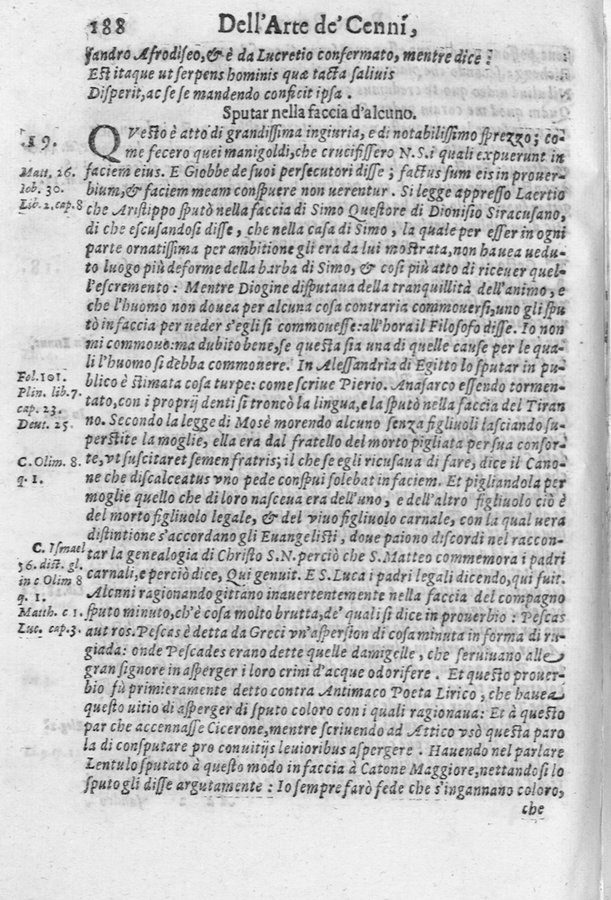 188 Dell'Arte de' Cenni,
ſandro Afrodiſeo, & è da Lucretio confermato, mentre dice:
Eſt itaque ut ſerpens hominis quæ tacta ſaliuis
Diſperit, ac ſe ſe mandendo conficit ipſa.
Sputar nella faccia d'alcuno.
19.
QVeſto è atto di grandiſſima ingiuria, e di notabiliſſimo ſprezzo; co-
me fecero quei manigoldi, che crucifiſſero N.S. i quali expuerunt in
Matt. 26.
faciem eius. E Giobbe de ſuoi perſecutori diſſe; factus ſum eis in prouer-
Iob. 30.
bium, & faciem meam conſpuere non uerentur. Si legge appreſſo Laertio
Lib. 2. cap. 8
che Ariſtippo ſputò nella faccia di Simo Queſtore di Dioniſio Siracuſano,
di che eſcuſandoſi diſſe, che nella caſa di Simo, la quale per eſſer in ogni
parte ornatiſſima per ambitione gli era da lui moſtrata, non hauea uedu-
to luogo più deforme della barba di Simo, & coſi più atto di riceuer quel-
l'eſcremento: Mentre Diogine diſputaua della tranquillità dell'animo, e
che l'huomo non douea per alcuna coſa contraria commouerſi, uno gli ſpu
tò in faccia per ueder s'egli ſi commoueſſe: all'hora il Filoſofo diſſe. Io non
mi commouo: ma dubito bene, ſe queſta ſia una di quelle cauſe per le qua-
li l'huomo ſi debba commouere. In Aleſſandria di Egitto lo ſputar in pu-
Fol. 101.
blico è ſtimata coſa turpe: come ſcriue Pierio. Anaſarco eſſendo tormen-
Plin. lib. 7.
tato, con i proprij denti ſi troncò la lingua, e la ſputò nella faccia del Tiran
cap. 23.
no. Secondo la legge di Mosè morendo alcuno ſenza figliuoli laſciando ſu-
Deut. 25.
perſtite la moglie, ella era dal fratello del morto pigliata per ſua conſor-
C. Olim. 8.
te, vt ſuſcitaret ſemen fratris; il che ſe egli ricuſaua di fare, dice il Cano-
q. 1.
ne che diſcalceatus vno pede conſpui ſolebat in faciem. Et pigliandola per
moglie quello che di loro naſceua era dell'uno, e dell'altro figliuolo ciò è
del morto figliuolo legale, & del viuo figliuolo carnale, con la qual uera
diſtintione s'accordano gli Euangeliſti, doue paiono diſcordi nel raccon-
C. Iſmael
tar la genealogia di Chriſto S.N. perciò che S. Matteo commemora i padri
36. diſt. gl.
carnali, e perciò dice, Qui genuit. E S. Luca i padri legali dicendo, qui fuit.
in c Olim 8
Alcuni ragionando gittano inauertentemente nella faccia del compagno
q. 1.
Matth. c 1.
ſputo minuto, ch'è coſa molto brutta, de' quali ſi dice in prouerbio: Peſcas
Luc. cap. 3.
aut ros. Peſcas è detta da Greci vn'aſperſion di coſa minuta in forma di ru-
giada: onde Peſcades erano dette quelle damigelle, che ſeruiuano alle
gran ſignore in aſperger i loro crini d'acque odorifere. Et queſto prouer-
bio fù primieramente detto contra Antimaco Poeta Lirico, che hauea
queſto uitio di aſperger di ſputo coloro con i quali ragionaua: Et à queſto
par che accennaſſe Cicerone, mentre ſcriuendo ad Attico vsò queſta paro
la di conſputare pro conuitijs leuioribus aſpergere. Hauendo nel parlare
Lentulo ſputato à queſto modo in faccia à Catone Maggiore, nettandoſi lo
ſputo gli diſſe argutamente: Io ſempre farò fede che s'ingannano coloro,
che